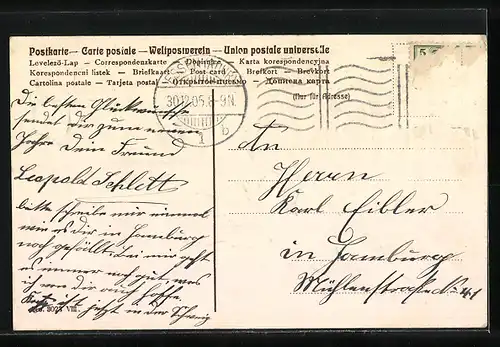 Postkarte — Carte postale — Weltpostverein — Union postale universelle
Levelező-Lap — Correspondenzkarte — Dopisnice — Karta korespondencyjna
Korespondencni listek — Briefkaart — Post card — Brefkort — Brevkort
Cartolina postale — Tarjeta postal — Открытое письмо — Дописна карта
(Nur für Adresse)
5
30.12.05. 8-9N.
1 b
Die besten Glückwünsche
sendet dir zum neuen
Jahre Dein Freund
Leopold Schlett
bitte schreibe mir einmal
wie es dir in Hamburg
noch gefällt. Bei mir geht
es immer noch gut was
ich von dir auch hoffe.
ist jetzt in der Schweiz
An
Herrn
Karl Eibler
in Hamburg
Mühlenstraße No. 41
VIII.